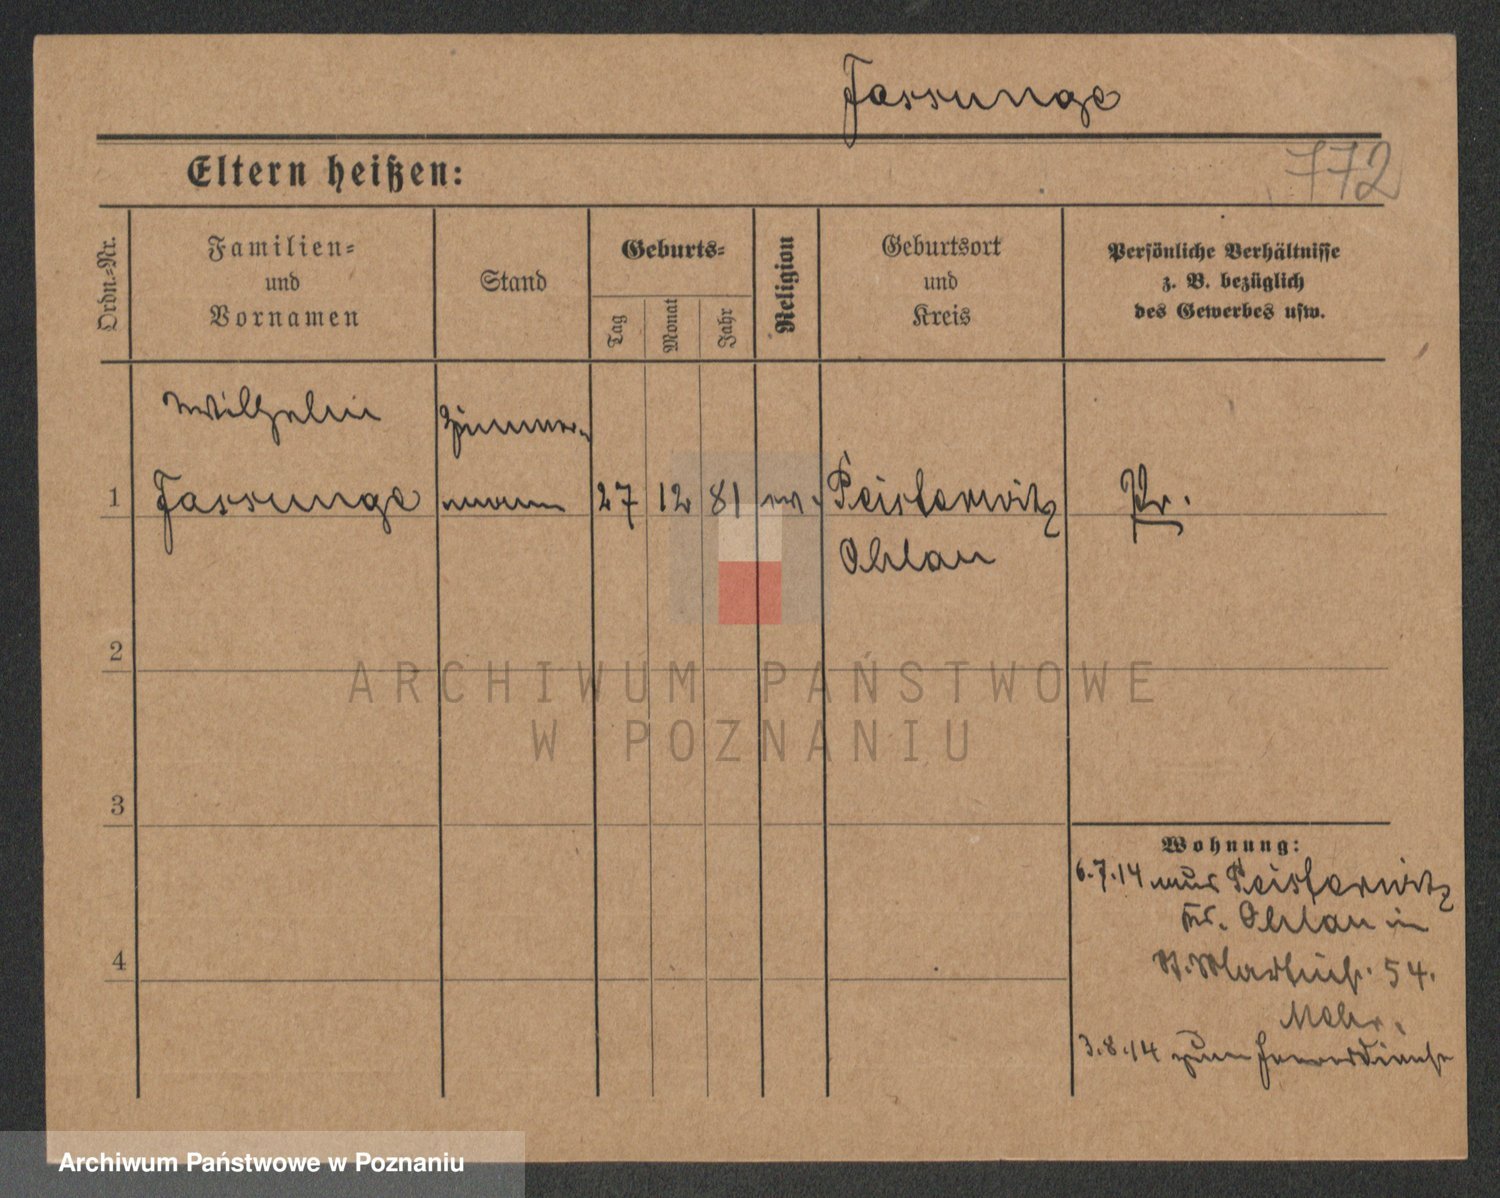 Fassunge
772
Eltern heißen:
Ordn.-Nr.
Familien-
und
Vornamen
Stand
Geburts-
Tag
Monat
Jahr
Religion
Geburtsort
und
Kreis
Persönliche Verhältnisse
z. B. bezüglich
des Gewerbes usw.
Wilhelm
Zimmer-
1 Fassunge mann 27 12 81 ev. Peisterwitz Pr.
Ohlau
2
3
4
Wohnung:
6.7.14 aus Peisterwitz
Kr. Ohlau in
St. Martinstr. 54.
3.8.14 zum Heeresdienst
ARCHIWUM PAŃSTWOWE
W POZNANIU
Archiwum Państwowe w Poznaniu